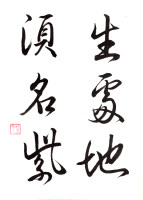 生處地
須名紫